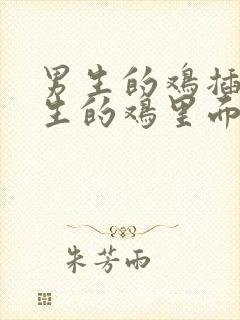 男生的鸡插
生的鸡里而
朱芳雨